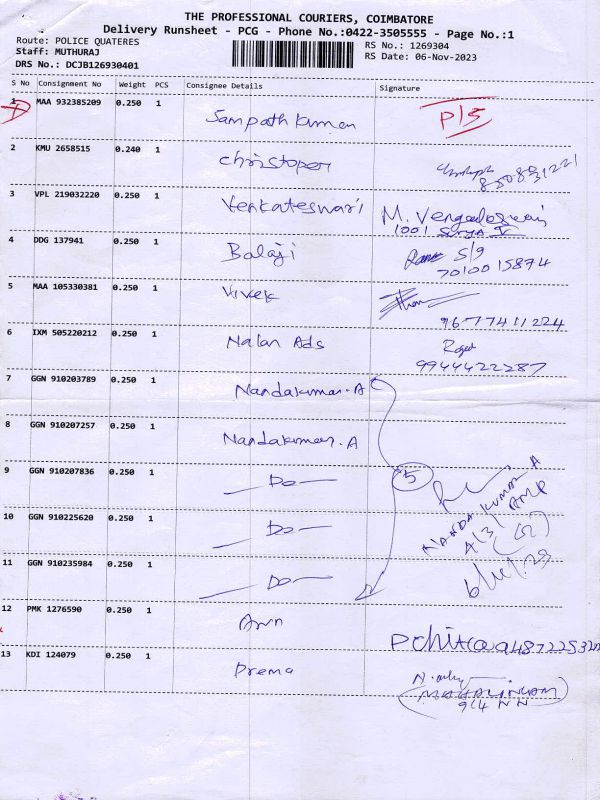 THE PROFESSIONAL COURIERS, COIMBATORE
Delivery Runsheet - PCG - Phone No.:0422-3505555 - Page No.:1
Route: POLICE QUATERES
Staff: MUTHURAJ
DRS No.: DCJB126930401
RS No.: 1269304
RS Date: 06-Nov-2023
S No Consignment No Weight PCS Consignee Details Signature
1 MAA 932385209 0.250 1 Sampath Kumar P/S
2 KMU 2658515 0.240 1 Christoper
3 VPL 219032220 0.250 1 Venkateswari
1001
4 DDG 137941 0.250 1 Balaji S/9
7010015874
5 MAA 105330381 0.250 1 Vivek
9677411224
6 IXM 505220212 0.250 1 Nalan Ads
9944422287
7 GGN 910203789 0.250 1 Nandakumar.A
8 GGN 910207257 0.250 1 Nandakumar.A
9 GGN 910207836 0.250 1 — Do — 5
NANDA KUMAR A
10 GGN 910225620 0.250 1 — Do —
11 GGN 910235984 0.250 1 — Do —
6/11/23
12 PMK 1276590 0.250 1 Arun
13 KDI 124079 0.250 1 Prema
MAHALINGAM